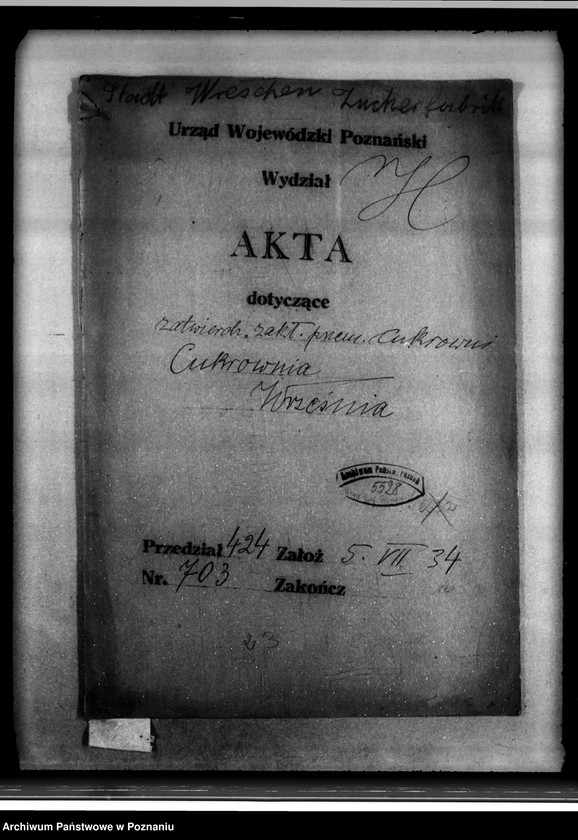 Stadt Wreschen Zuckerfabrik
Urząd Wojewódzki Poznański
Wydział
AKTA
dotyczące
zatwierdz. zakł. przem. cukrowni
Cukrownia
Września
Archiwum Państw. Poznań
5528
Przedział 424 Założ 5. VII 34
Nr. 703 Zakończ
Archiwum Państwowe w Poznaniu